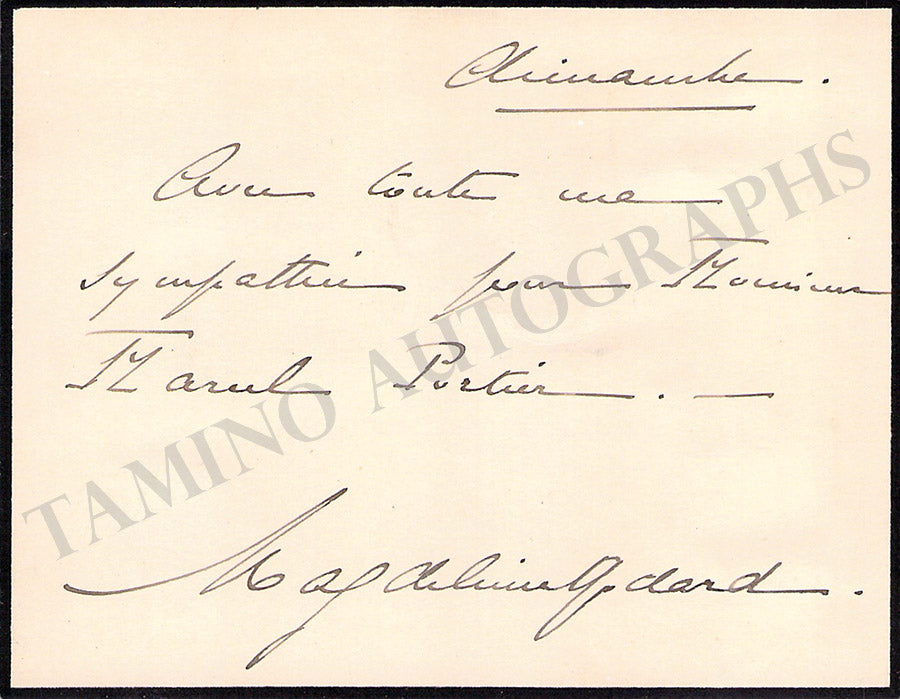 Dimanche.
Avec toute ma
sympathie pour Monsieur
Marcel Portier. —
Magdeleine Godard.
TAMINO AUTOGRAPHS